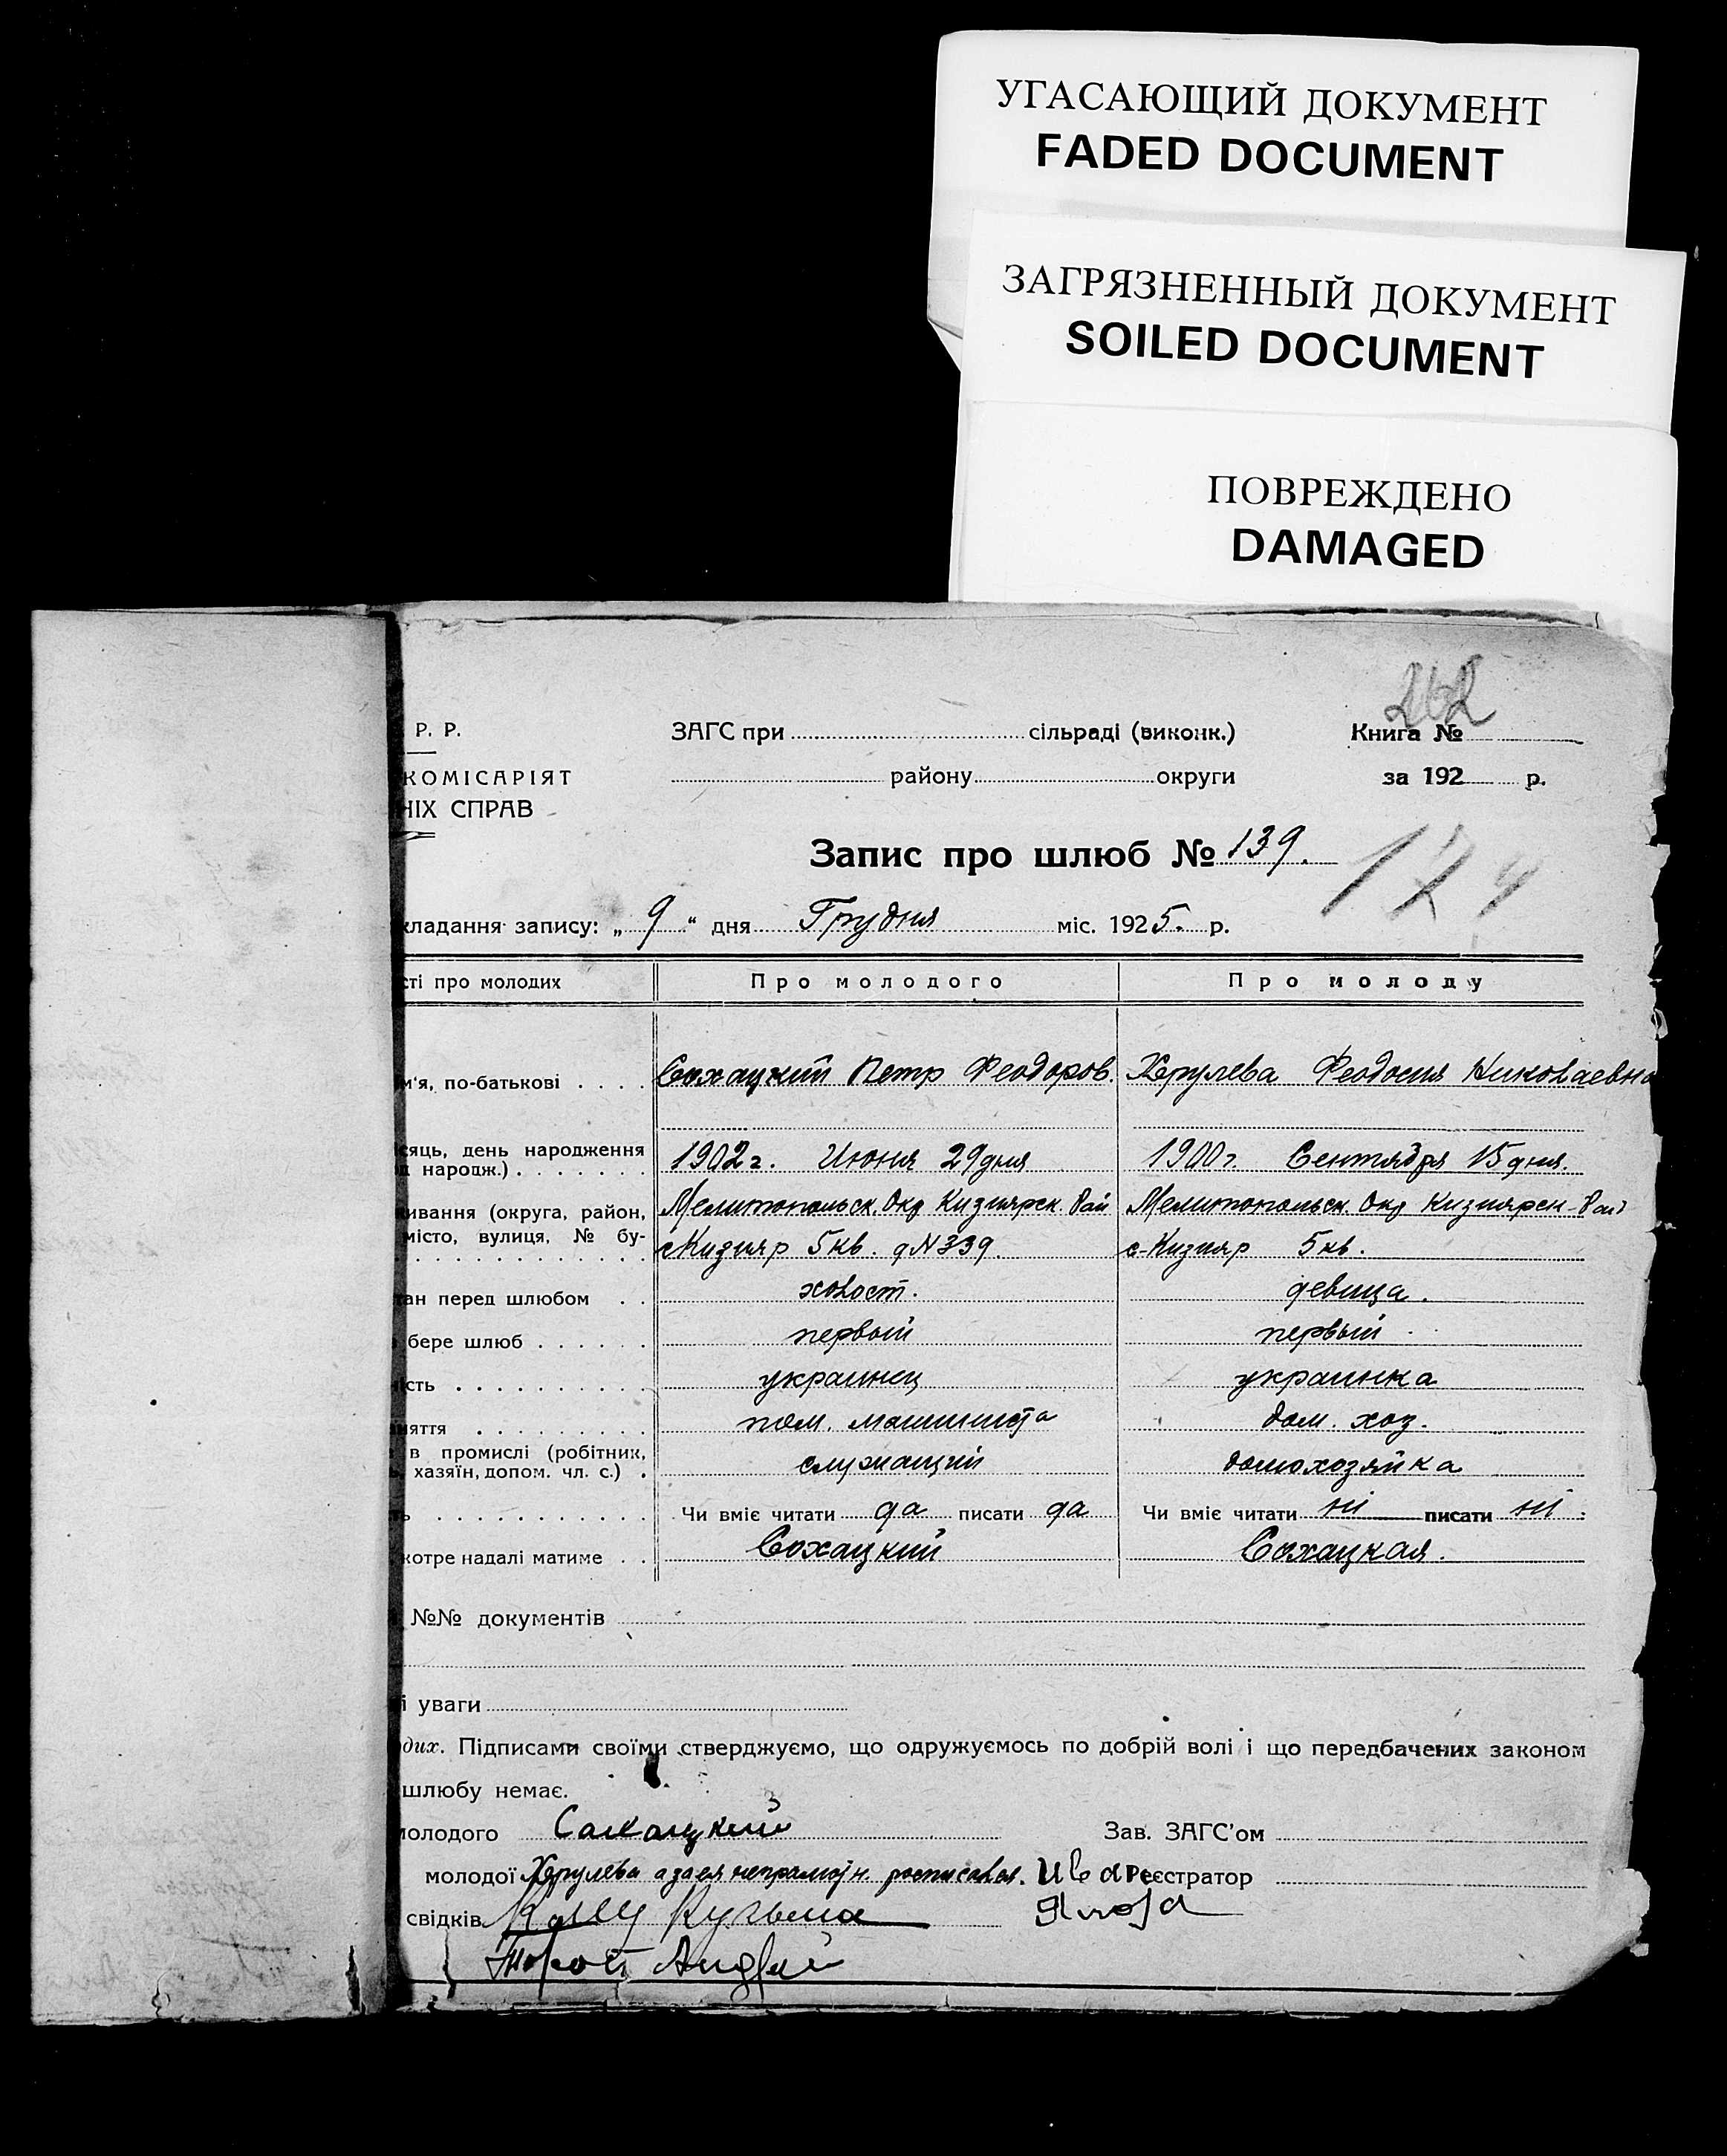 УГАСАЮЩИЙ ДОКУМЕНТ
FADED DOCUMENT
ЗАГРЯЗНЕННЫЙ ДОКУМЕНТ
SOILED DOCUMENT
ПОВРЕЖДЕНО
DAMAGED
262
Р. Р. ЗАГС при сільраді (виконк.) Книга №
КОМІСАРІЯТ району округи за 192 р.
НІХ СПРАВ
Запис про шлюб № 139. 174
кладання запису: „ 9 “ дня Грудня міс. 1925. р.
сті про молодих Про молодого Про молоду
м'я, по-батькові Сохацкий Петр Феодоров. Хрулева Феодосия Николаевна
ісяць, день народження 1902 г. Июня 29 дня 1900 г. Сентября 15 дня.
д народж.)
живання (округа, район, Мелитопольск. Окр Кизиярск. Рай Мелитопольск. Окр Кизиярск-Рай
місто, вулиця, № бу- с Кизияр 5 кв. д N 339. с-Кизияр 5 кв.
тан перед шлюбом холост. девица.
бере шлюб первый первый
ість украинец украинка
няття пом. машиниста дом. хоз.
в промислі (робітник, служащий домохозяйка
хазяїн, допом. чл. с.)
ть Чи вміє читати да писати да Чи вміє читати ні писати ні
котре надалі матиме Сохацкий Сохацкая.
№№ документів
і уваги
дих. Підписами своїми стверджуємо, що одружуємось по добрій волі і що передбачених законом
шлюбу немає.
молодого Сахацкий Зав. ЗАГС'ом
молодої Хрулева а за ея неграмотн. росписався. Ива Реєстратор
свідків Кузьма
Андрей